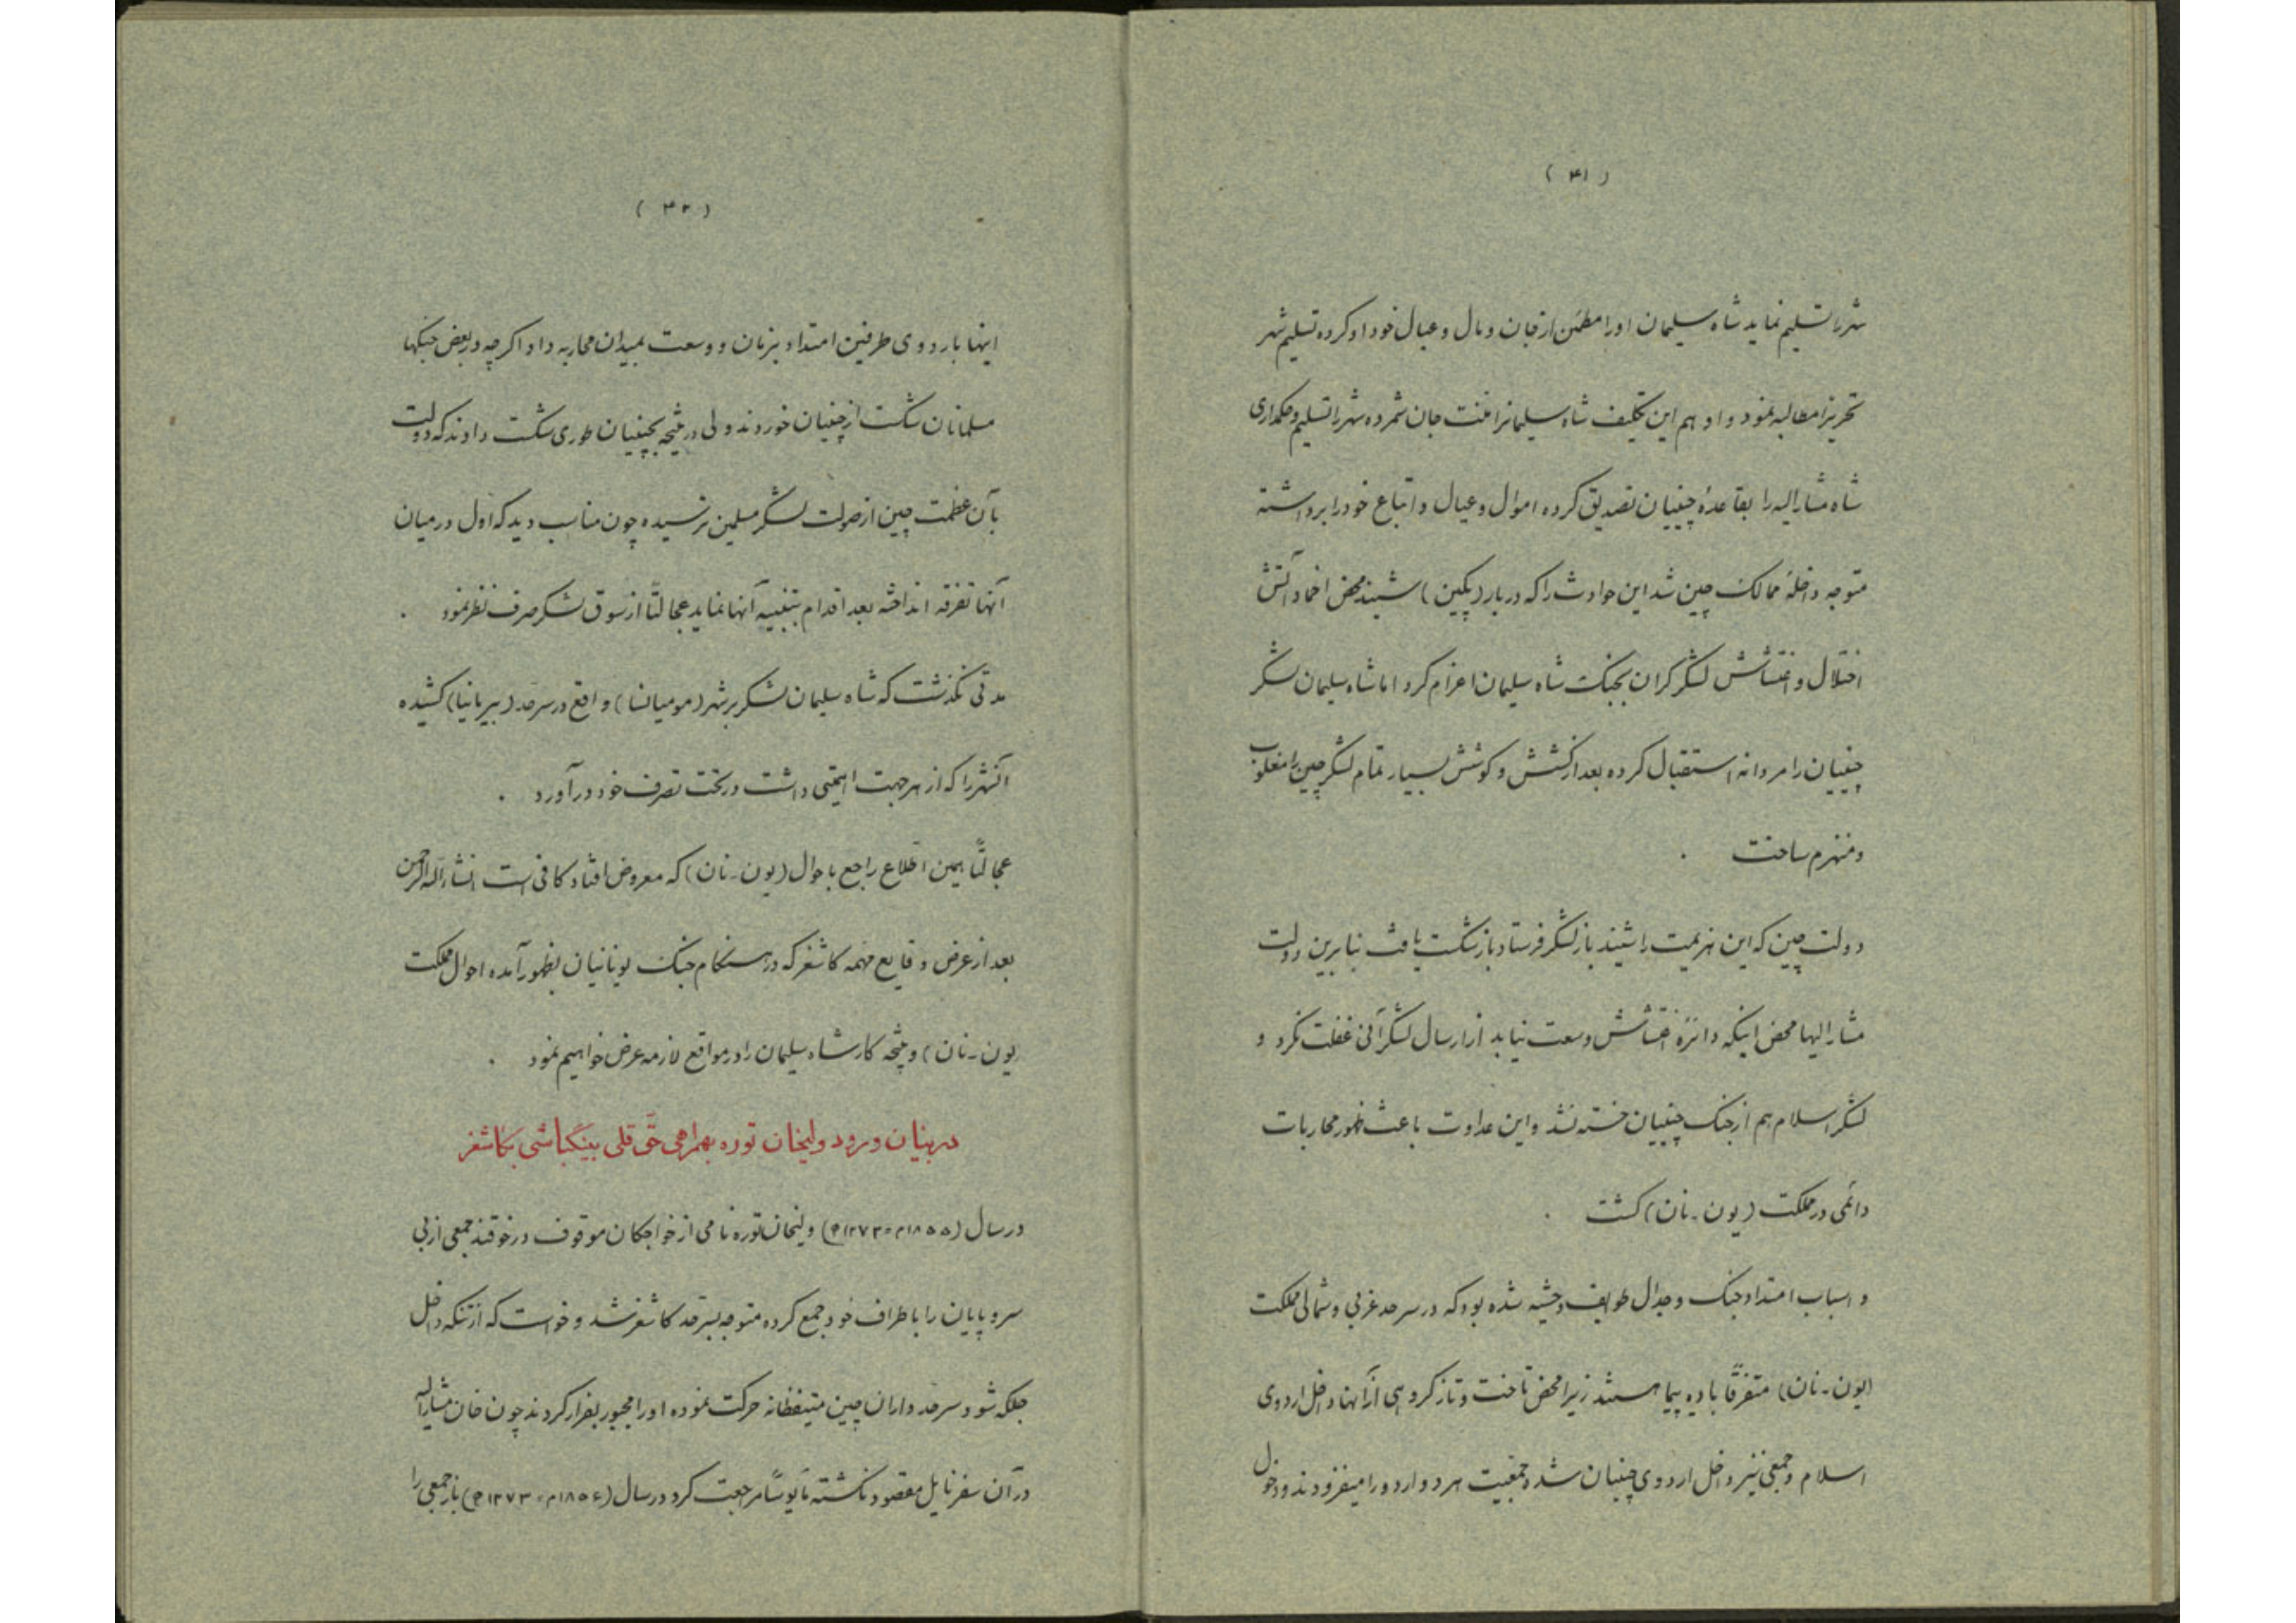 ( ۴۱ )
شهر را تسلیم نماید شاه سلیمان او را مطمئن از جان و مال و عیال خود او کرده تسلیم شهر
تحریزا مطالبه نمود و او هم این تکلیف شاه سلیمانرا منت جان شمرده شهر را تسلیم و حکمداری
شاه مشارالیه را بقاعدهٔ چینیان تصدیق کرده اموال و عیال و اتباع خود را برداشته
متوجه داخلهٔ ممالک چین شد این حوادث را که دربار (پکین) شنید محض اخماد آتش
اختلال و اغتشاش لشکر گران بجنگ شاه سلیمان اعزام کرد اما شاه سلیمان لشکر
چینیان را مردانه استقبال کرده بعد از کشش و کوشش بسیار تمام لشکر چین را مغلوب
و منهزم ساخت .
دولت چین که این هزیمت را شنید باز لشکر فرستاد باز شکست یافت بنابرین دولت
مشارالیها محض اینکه دائرهٔ اغتشاش وسعت نیابد از ارسال لشکر آنی غفلت نکرد و
لشکر اسلام هم از جنگ چینیان خسته نشد و این عداوت باعث ظهور محاربات
دائمی در مملکت (یون-نان) گشت .
و اسباب امتداد جنگ و جدال طوایف وحشیه شده بود که در سرحد غربی و شمالی مملکت
(یون-نان) متفرقاً بادیه پیما هستند زیرا محض تاخت و تاز گروهی از آنها داخل اردوی
اسلام و جمعی نیز داخل اردوی چینیان شد و جمعیت هر دو اردو را میفزودند و دخول
( ۴۲ )
اینها باردوی طرفین امتداد بزمان و وسعت بمیدان محاربه داد اگر چه در بعض جنگها
مسلمانان شکست از چینیان خوردند ولی در نتیجه بچینیان طوری شکست دادند که دولت
بآن عظمت چین از صولت لشکر مسلمین ترسیده چون مناسب دید که اول در میان
آنها تفرقه انداخته بعد اقدام بتنبیه آنها نماید عجالتاً از سوق لشکر صرف نظر نمود .
مدتی نگذشت که شاه سلیمان لشکر بر شهر (مومیانسا) واقع در سرحد (بیرمانیا) کشیده
آنشهر را که از هر جهت اهمیتی داشت در تحت تصرف خود در آورد .
عجالتاً همین اطلاع راجع باحوال (یون-نان) که معروض افتاد کافی است انشاءالله الرحمن
بعد از عرض وقایع مهمه کاشغر که در هنگام جنگ یونانیان بظهور آمده احوال مملکت
(یون-نان) و نتیجه کار شاه سلیمان را در مواقع لازمه عرض خواهیم نمود .
در بیان ورود ولیخان توره بهمراهی حق قلی بینگباشی بکاشغر
در سال (۱۸۵۵م = ۱۲۷۳ه) ولیخان توره نامی از خواجگان موقوف در خوقند جمعی از بی
سر و پایان را باطراف خود جمع کرده متوجه بسرحد کاشغر شد و خواست که از تنگه داخل
جلگه شود سرحد داران چین متیقظانه حرکت نموده او را مجبور بفرار کردند چون خان مشارالیه
در آن سفر نایل مقصود نگشته مأیوساً مراجعت کرد در سال (۱۸۵۶م = ۱۲۷۳ه) باز جمعی را